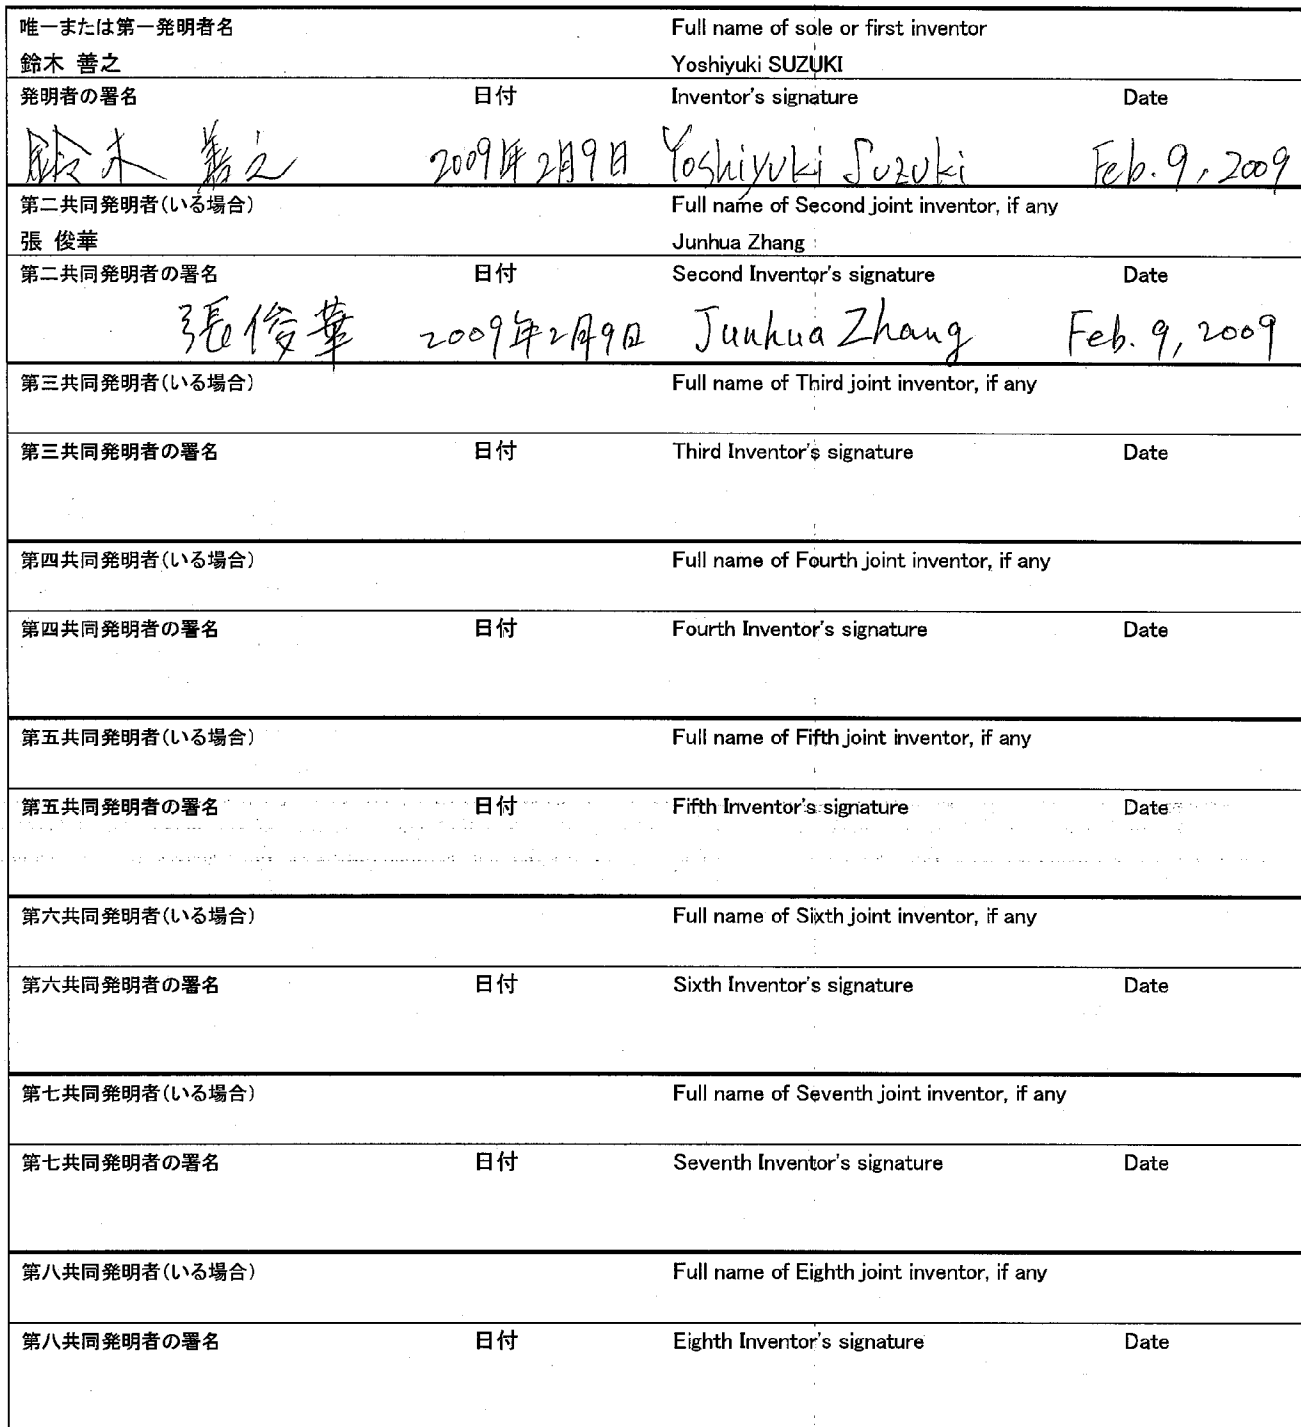 唯一または第一発明者名 Full name of sole or first inventor
鈴木 善之 Yoshiyuki SUZUKI
発明者の署名 日付 Inventor's signature Date
鈴木 善之 2009年2月9日 Yoshiyuki Suzuki Feb. 9, 2009
第二共同発明者(いる場合) Full name of Second joint inventor, if any
張 俊華 Junhua Zhang
第二共同発明者の署名 日付 Second Inventor's signature Date
張俊華 2009年2月9日 Junhua Zhang Feb. 9, 2009
第三共同発明者(いる場合) Full name of Third joint inventor, if any
第三共同発明者の署名 日付 Third Inventor's signature Date
第四共同発明者(いる場合) Full name of Fourth joint inventor, if any
第四共同発明者の署名 日付 Fourth Inventor's signature Date
第五共同発明者(いる場合) Full name of Fifth joint inventor, if any
第五共同発明者の署名 日付 Fifth Inventor's signature Date
第六共同発明者(いる場合) Full name of Sixth joint inventor, if any
第六共同発明者の署名 日付 Sixth Inventor's signature Date
第七共同発明者(いる場合) Full name of Seventh joint inventor, if any
第七共同発明者の署名 日付 Seventh Inventor's signature Date
第八共同発明者(いる場合) Full name of Eighth joint inventor, if any
第八共同発明者の署名 日付 Eighth Inventor's signature Date